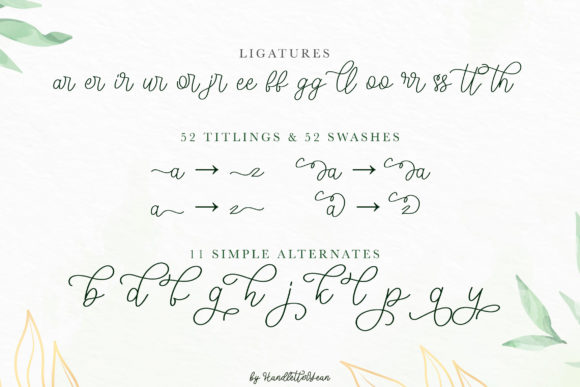 LIGATURES
ar er ir ur or jr ee ff gg ll oo rr ss tt th
52 TITLINGS & 52 SWASHES
a → z a → a
a → z a → z
11 SIMPLE ALTERNATES
b d f g h j k l p q y
by HandletterYean